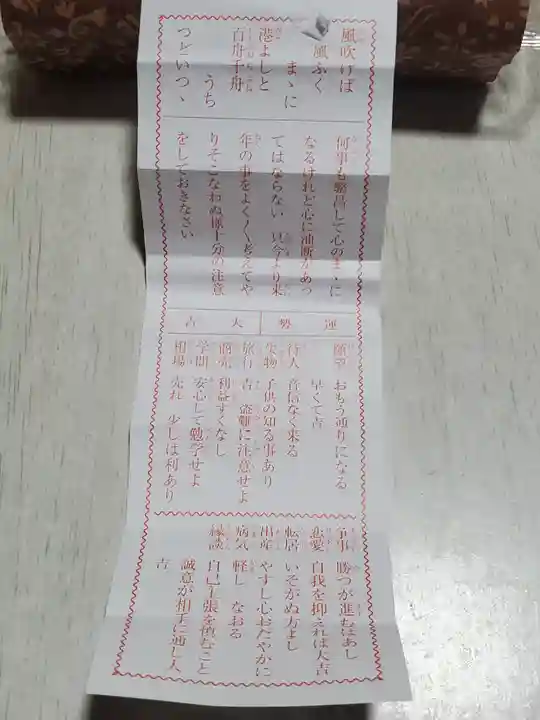 風吹けば
風ふく
まゝに
港よしと
百舟千舟
うち
つどいつゝ
何事も繁昌して心のまゝに
なるけれど心に油断があつ
てはならない 只今より来
年の事をよくよく考えてや
りそこなわぬ様十分の注意
をしておきなさい
運勢 大吉
願望 おもう通りになる
早くて吉
待人 音信なく来る
失物 子供の知る事あり
旅行 吉 盗難に注意せよ
商売 利益すくなし
学問 安心して勉学せよ
相場 売れ 少しは利あり
争事 勝つが進むはあし
恋愛 自我を抑えれば大吉
転居 いそがぬ方よし
出産 やすし心おだやかに
病気 軽し なおる
縁談 自己主張を慎むこと
誠意が相手に通じ大
吉